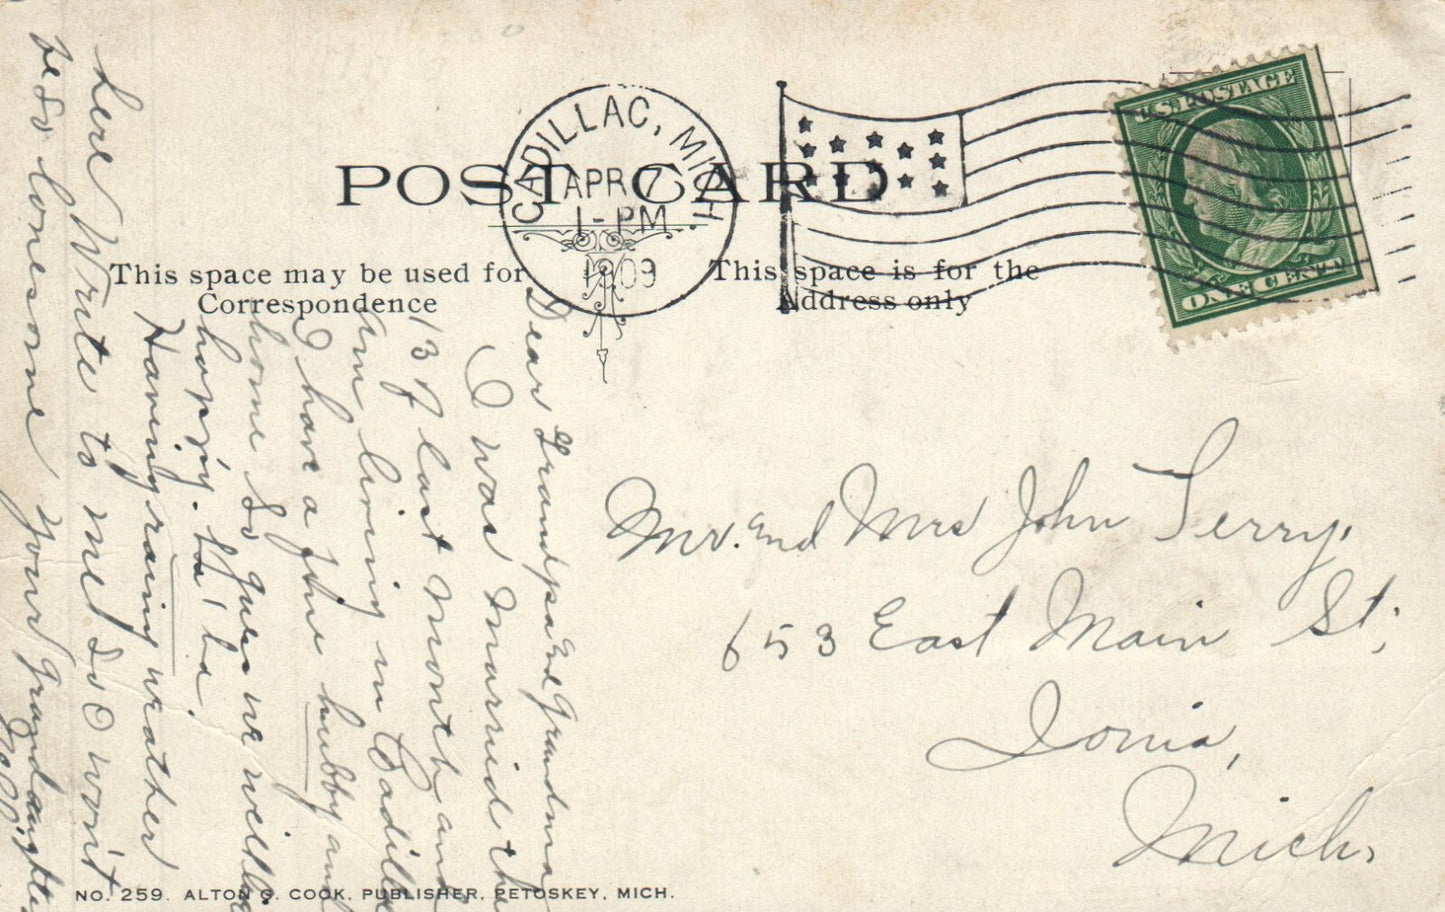 POST CARD
CADILLAC, MICH.
APR 7
1-PM
1909
U.S. POSTAGE
ONE CENT
This space may be used for
Correspondence
This space is for the
Address only
Dear Grandpa End Grandma
I was married th
13 of last month and
Am living in Cadillac
I have a fine hubby and
home So guess we will be
happy. ha! ha
Having rainy weather
here Write to me So I won't
be So lonesome Your Granddaughter
Mr. End Mrs John Terry.
653 East Main St;
Ionia,
Mich,
NO. 259. ALTON G. COOK, PUBLISHER, PETOSKEY, MICH.